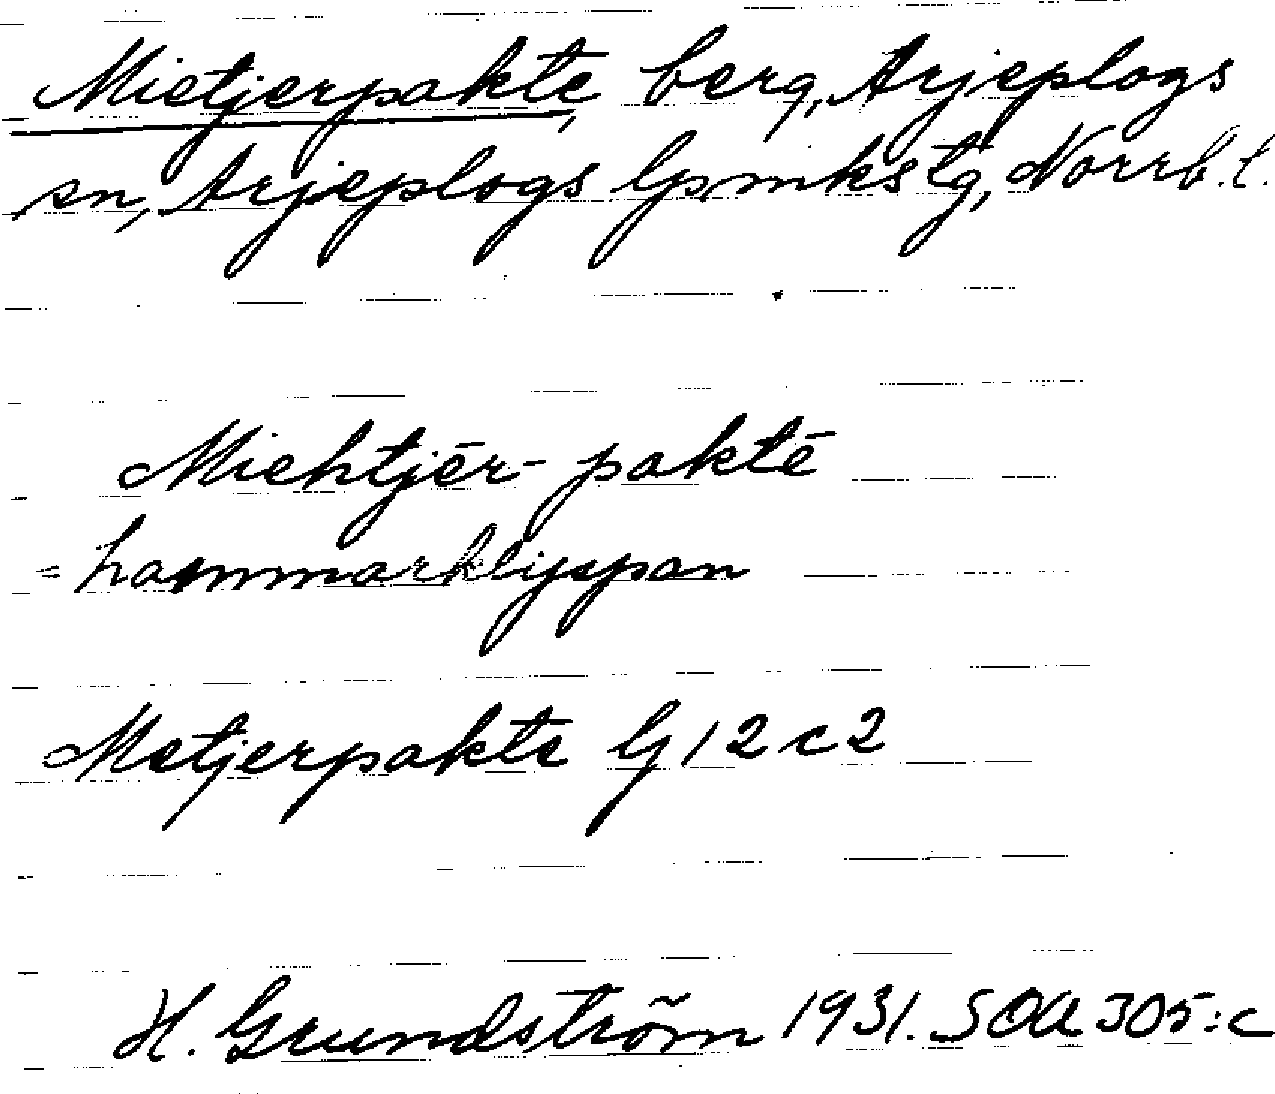 Mietjerpakte, berg, Arjeplogs
sn, Arjeplogs lpmkstg, Norrb.l.
Miehtjēr-paktē
= hammarklyspan
Metjerpakte Gj 12 c 2
H. Grundström 1931. SOA 305:c